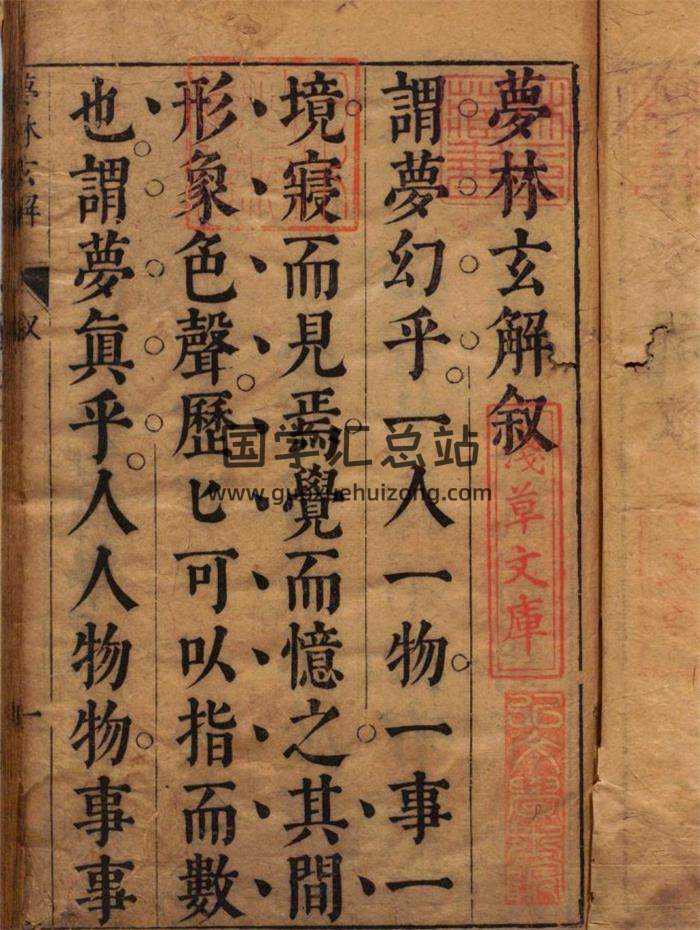 夢林玄解叙
謂夢幻乎一人一物一事一
境寢而見焉覺而憶之其間
形象色聲歷匕可以指而數
也謂夢眞乎人人物物事事
夢林玄解
叙
一
淺草文庫
国学汇总站
www.guoxuehuizong.com